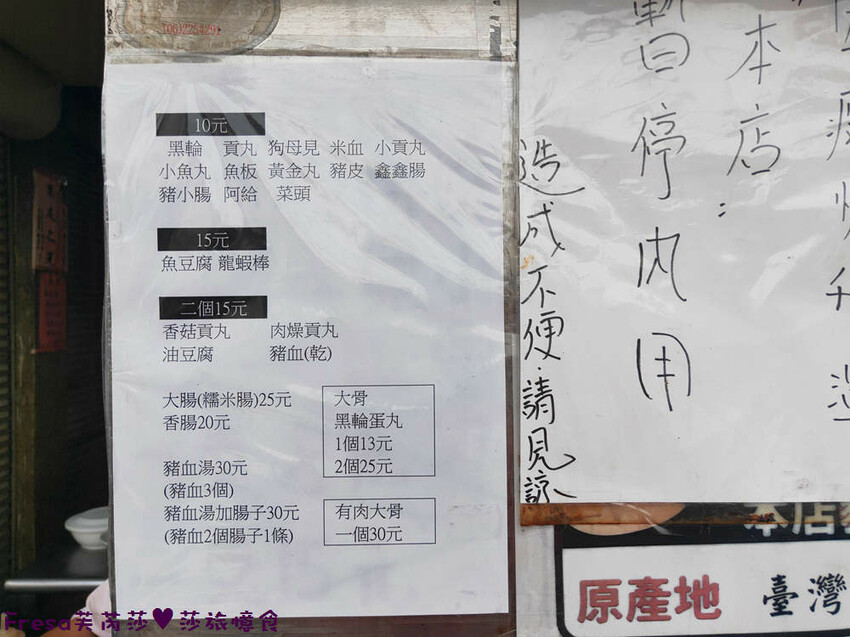 10元
黑輪 貢丸 狗母見 米血 小貢丸
小魚丸 魚板 黃金丸 豬皮 鑫鑫腸
豬小腸 阿給 菜頭
15元
魚豆腐 龍蝦棒
二個15元
香菇貢丸 肉燥貢丸
油豆腐 豬血(乾)
大腸(糯米腸)25元
香腸20元
豬血湯30元
(豬血3個)
豬血湯加腸子30元
(豬血2個腸子1條)
大骨
黑輪蛋丸
1個13元
2個25元
有肉大骨
一個30元
本店：
暫停內用
造成不便.請見諒
本店
原產地 臺灣
Fresa芙芮莎♥莎旅憶食